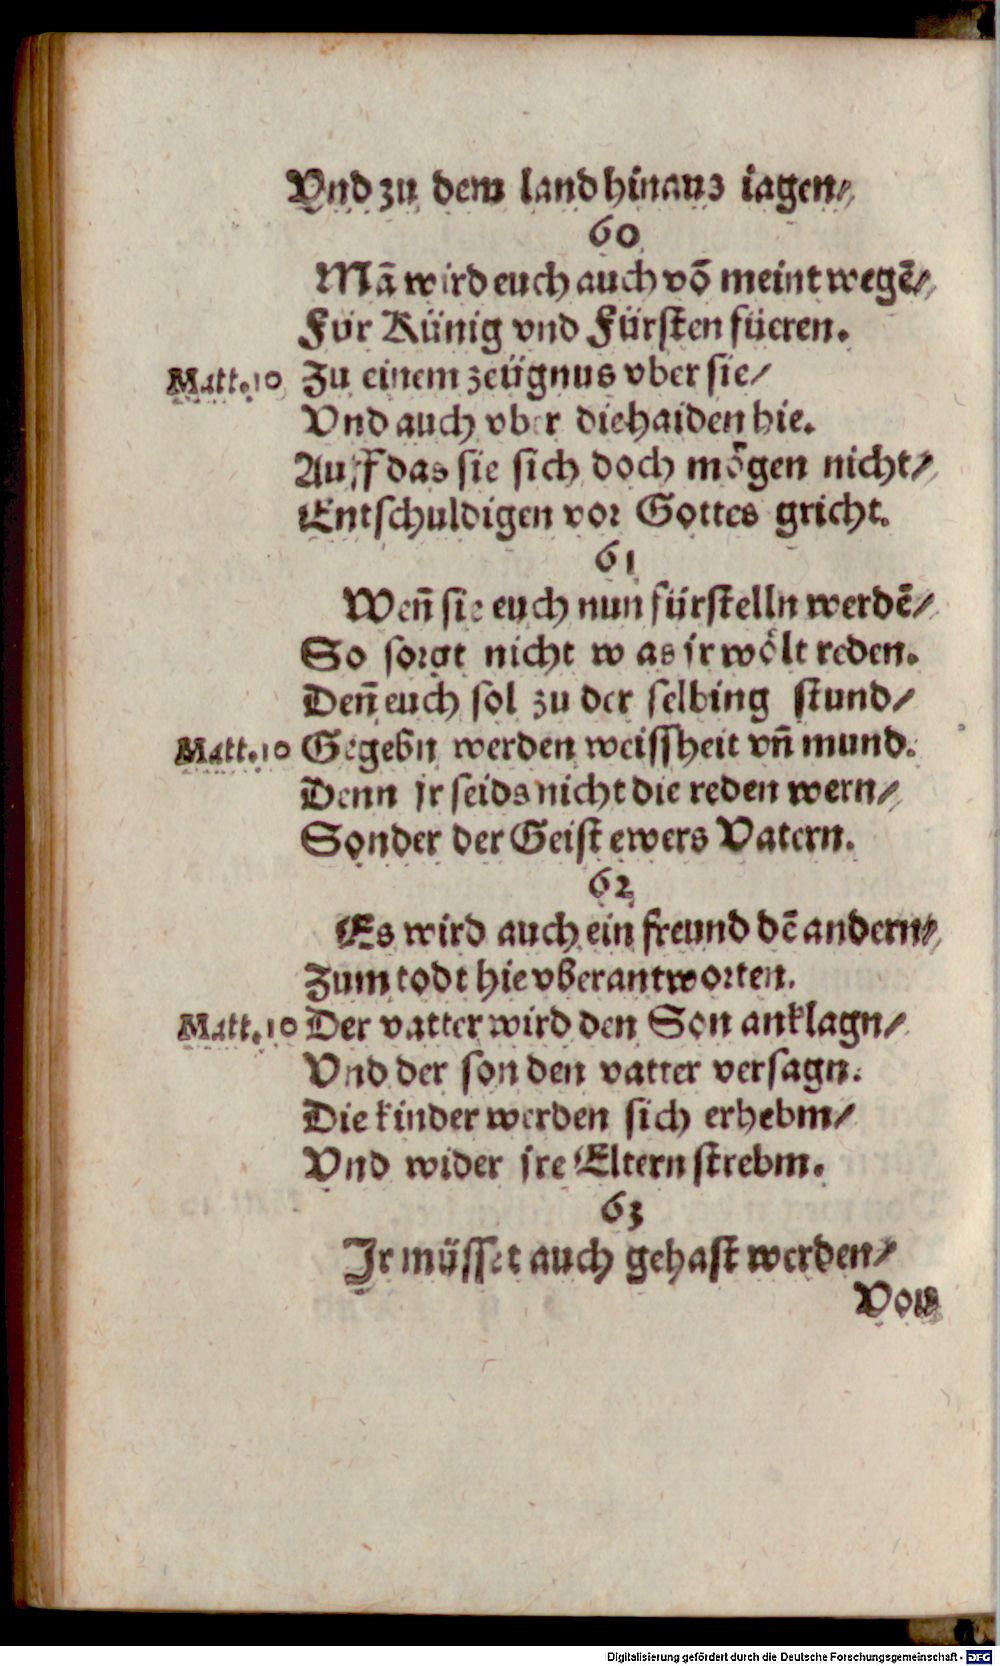 Vnd zu dem land hinaus iagen/
60
Mā wird euch auch vō meint wegē/
Für Künig vnd Fürsten füeren.
Matt.10 Zu einem zeügnus vber sie/
Vnd auch vber die haiden hie.
Auff das sie sich doch mögen nicht/
Entschuldigen vor Gottes gricht.
61
Weñ sie euch nun fürstelln werdē/
So sorgt nicht was jr wölt reden.
Deñ euch sol zu der selbing stund/
Matt.10 Gegebn werden weissheit vñ mund.
Denn jr seids nicht die reden wern/
Sonder der Geist ewers Vatern.
62
Es wird auch ein freund dē andern/
Zum todt hie vberantworten.
Matt.10 Der vatter wird den Son anklagn/
Vnd der son den vatter versagn.
Die kinder werden sich erhebm/
Vnd wider jre Eltern strebm.
63
Jr müsset auch gehast werden/
Von
Digitalisierung gefördert durch die Deutsche Forschungsgemeinschaft - DFG